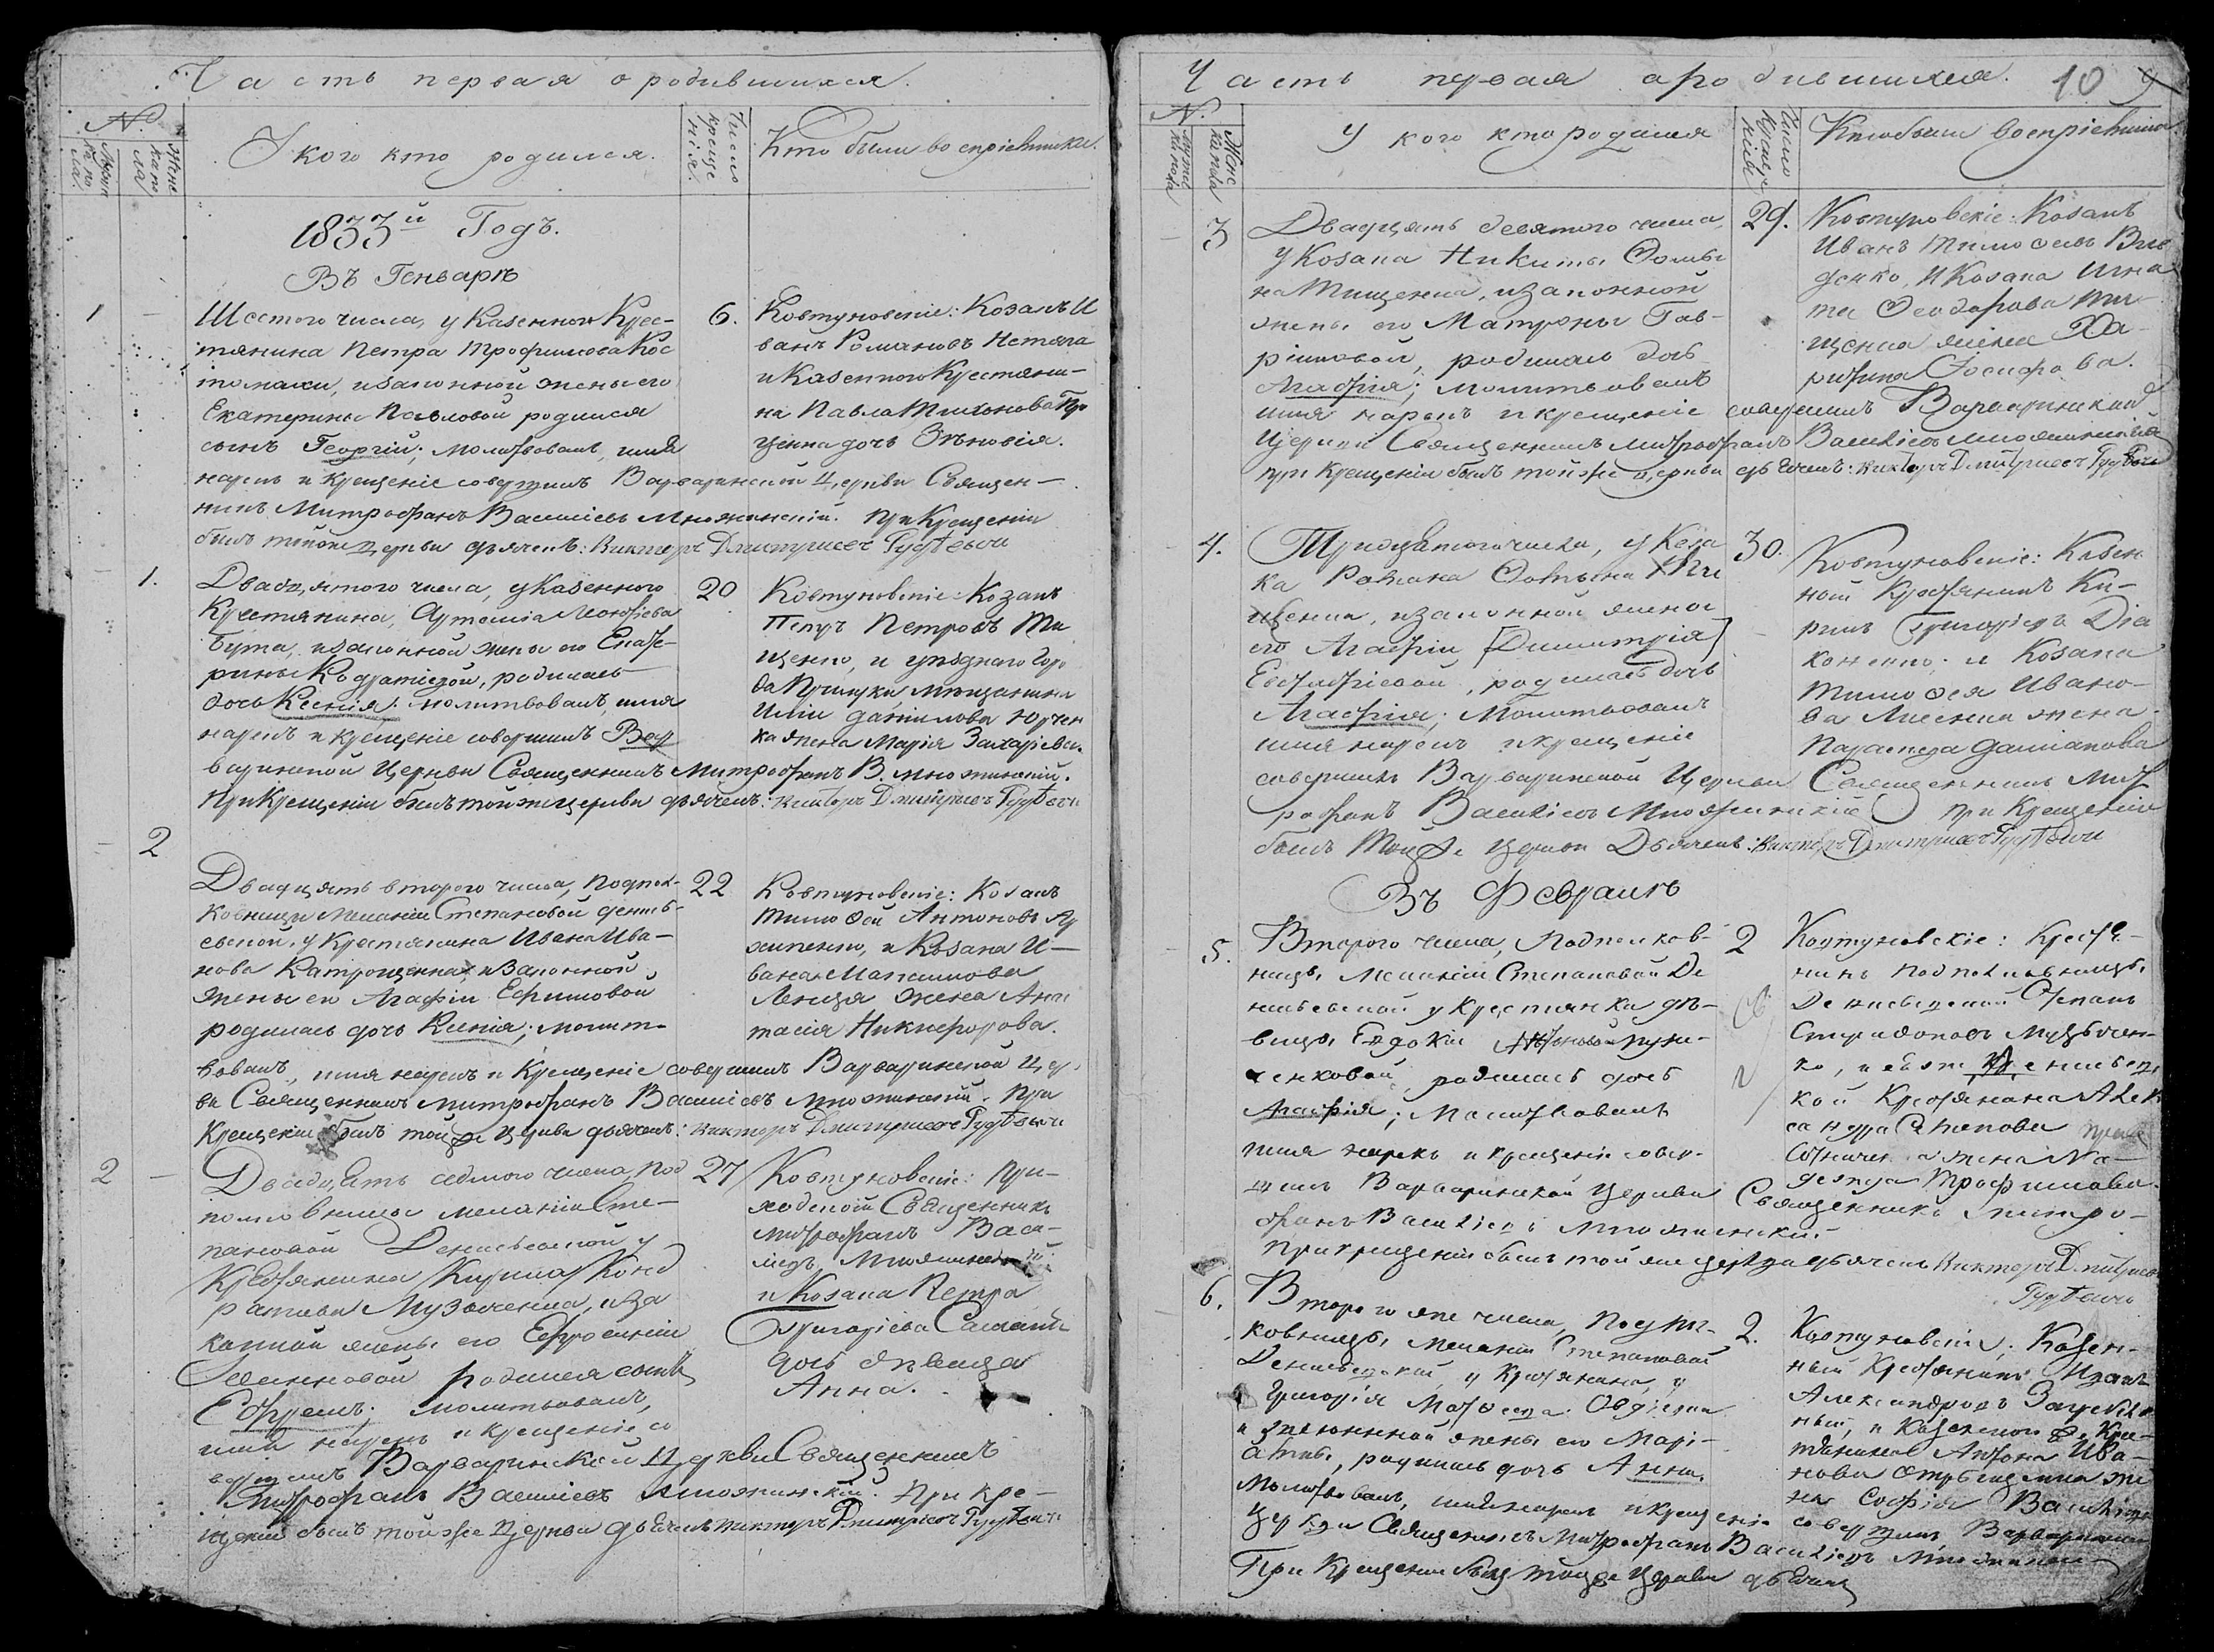 Часть первая о родившихся.
№.
Муж каго па
Жене каго па
У кого кто родился.
Число крещенія.
Кто были воспріемники.
1833й Годъ.
Въ Генварѣ
1
Шестого числа, у Казенного Крес-
тянина Петра Трофимова Кос
изаконной жены его
Екатерины Павловой родился
сынъ Георгій; молитвовалъ, имя
нарекъ и крещеніе совершилъ Варваринской Церкви Священ-
никъ Митрофанъ Василіевъ Множинскій. При Крещеніи
былъ тойже Церкви дьячекъ: Викторъ Дмитріевъ
6.
Ковтуновскіе: Козакъ И
ванъ Романовъ Нетяга
и Казенного Крестяни-
на Павла Тихонова Пр
дочь Зѣновія.
1.
Двадцятого числа, у Казенного
Крестянина, Артемія Леонтіева
Бута, изаконной жены его Екате-
рины Кодратіевой, родилась
дочь Ксенія; молитвовалъ, имя
нарекъ и крещеніе совершилъ Вар
варинской Церкви Священникъ Митрофанъ В. Множинскій.
При Крещеніи былъ тойже церкви дьячекъ: Викторъ Дмитріевъ
20
Ковтуновскіе: Козакъ
Петръ Петровъ Ти
щенко, и уѣздного Горо
да Прилуки, мѣщанина
Иліи Даніилова Юрчен
ка жена Марія Захаріева.
2
Двадцять второго числа, Подпол-
ковници Меланіи Степановой Денисъ-
евской, у Крестянина Ивана Ива-
нова Катрощенка, изаконной
жены его Агафіи Ефимовой
родилась дочь Ксенія; молит-
вовалъ, имя нарекъ и Крещеніе совершилъ Варваринской Церк
ви Священникъ Митрофанъ Василіевъ Множинскій. При
Крещеніи былъ тойже Церкви дьячекъ: Викторъ Дмитріевъ
22
Ковтуновскіе: Козакъ
Тимофей Антоновъ Ар
хипенко, и Козака И-
вана Максимова
жена Ана
тасія Никифорова.
2
Двадцять седмого числа, под
полковницы Меланіи Сте-
пановой Денисьевской у
Крестянина Кирила Конд
ратиева Музыченка, иза
конной жены его Ефросиніи
Семеновой родился сынъ
Ефремъ; молитвовалъ,
имя нарекъ и крещеніе со
вершилъ Варваринской Церкви Священникъ
Митрофанъ Василіевъ Множинскій. При Кре-
щеніи былъ тойже Церкви дьячекъ Викторъ Дмитріевъ
27
Ковтуновскіе: При-
ходскій Священникъ
Митрофанъ Васи-
ліевъ Множинскій
и Козака Петра
Григоріева
дочь дѣвица
Анна.
Часть первая о родившихся.
10 9
№.
Жене каго
У кого кто родился
Число Крещенія
Кто были воспріемники
3
Двадцять девятого числа,
у Козака Никиты Фоми
на Тищенка, изаконной
жены его Матроны Гав-
ріиловой, родилась дочь
Агафія; молитвовалъ
имя нарекъ и крещеніе совершилъ Варваринской
Церкви Священникъ Митрофанъ Василіевъ Множинскій
при Крещеніи былъ тойже Церкви дьячекъ: Викторъ Дмитріевъ
29.
Ковтуновскіе: Козакъ
Иванъ Тимофеевъ
денко, и Козака Игна
та Феодорова Ти-
щенка жена Ха-
ритина Іосифова.
4.
Тридцятого числа, у Коза
ка Романа
изаконной жены
его Агафіи [Димитрія]
Евстафіевой, родилась дочь
Агафія; Молитвовалъ
имя нарекъ и крещеніе
совершилъ Варваринской Церкви Священникъ Мит
рофанъ Василіевъ Множинскій При Крещеніи
былъ тойже Церкви Дьячекъ: Викторъ Дмитріевъ
30.
Ковтуновскіе: Казен
ный Крестянинъ Ки-
рилъ Григоріевъ Дія
коненко; и Козака
Тимофея Ивано-
ва Лисенка жена
Параскева Даміанова
Въ Февралѣ
5.
Второго числа, Подполков-
ницы Меланіи Степановой Де
нисьевской у Крестянки дѣ-
вицы Евдокіи
родилась дочь
Агафія; Молитвовалъ
имя нарекъ и крещеніе совер-
шилъ Варваринской Церкви Священникъ Митро-
фанъ Василіевъ Множинскій.
При крещеніи былъ тойже церкви дьячекъ Викторъ Дмитріевъ
2
Ковтуновскіе: Крестя-
нинъ подполковницы
Денисьевской Степанъ
Спиридоновъ Музычен-
ко, и
кой Крестянина Алек
сандра
жена На-
Трофимова.
6.
Второго же числа, Подпол-
ковницы Меланіи Степановой
Денисьевской, у Крестянина
Григорія Матфеева
и законной жены его Марі-
родилась дочь Анна.
Молитвовалъ, имя нарекъ и крещеніе совершилъ Варваринской
Церкви Священникъ Митрофанъ Василіевъ Множинскій
При Крещеніи былъ тойже Церкви дьячекъ
2.
Ковтуновскіе: Казен-
ный Крестянинъ Иванъ
Александровъ
ный, и Казенного Кре-
стянина Антона Ива-
нова же
на Софія